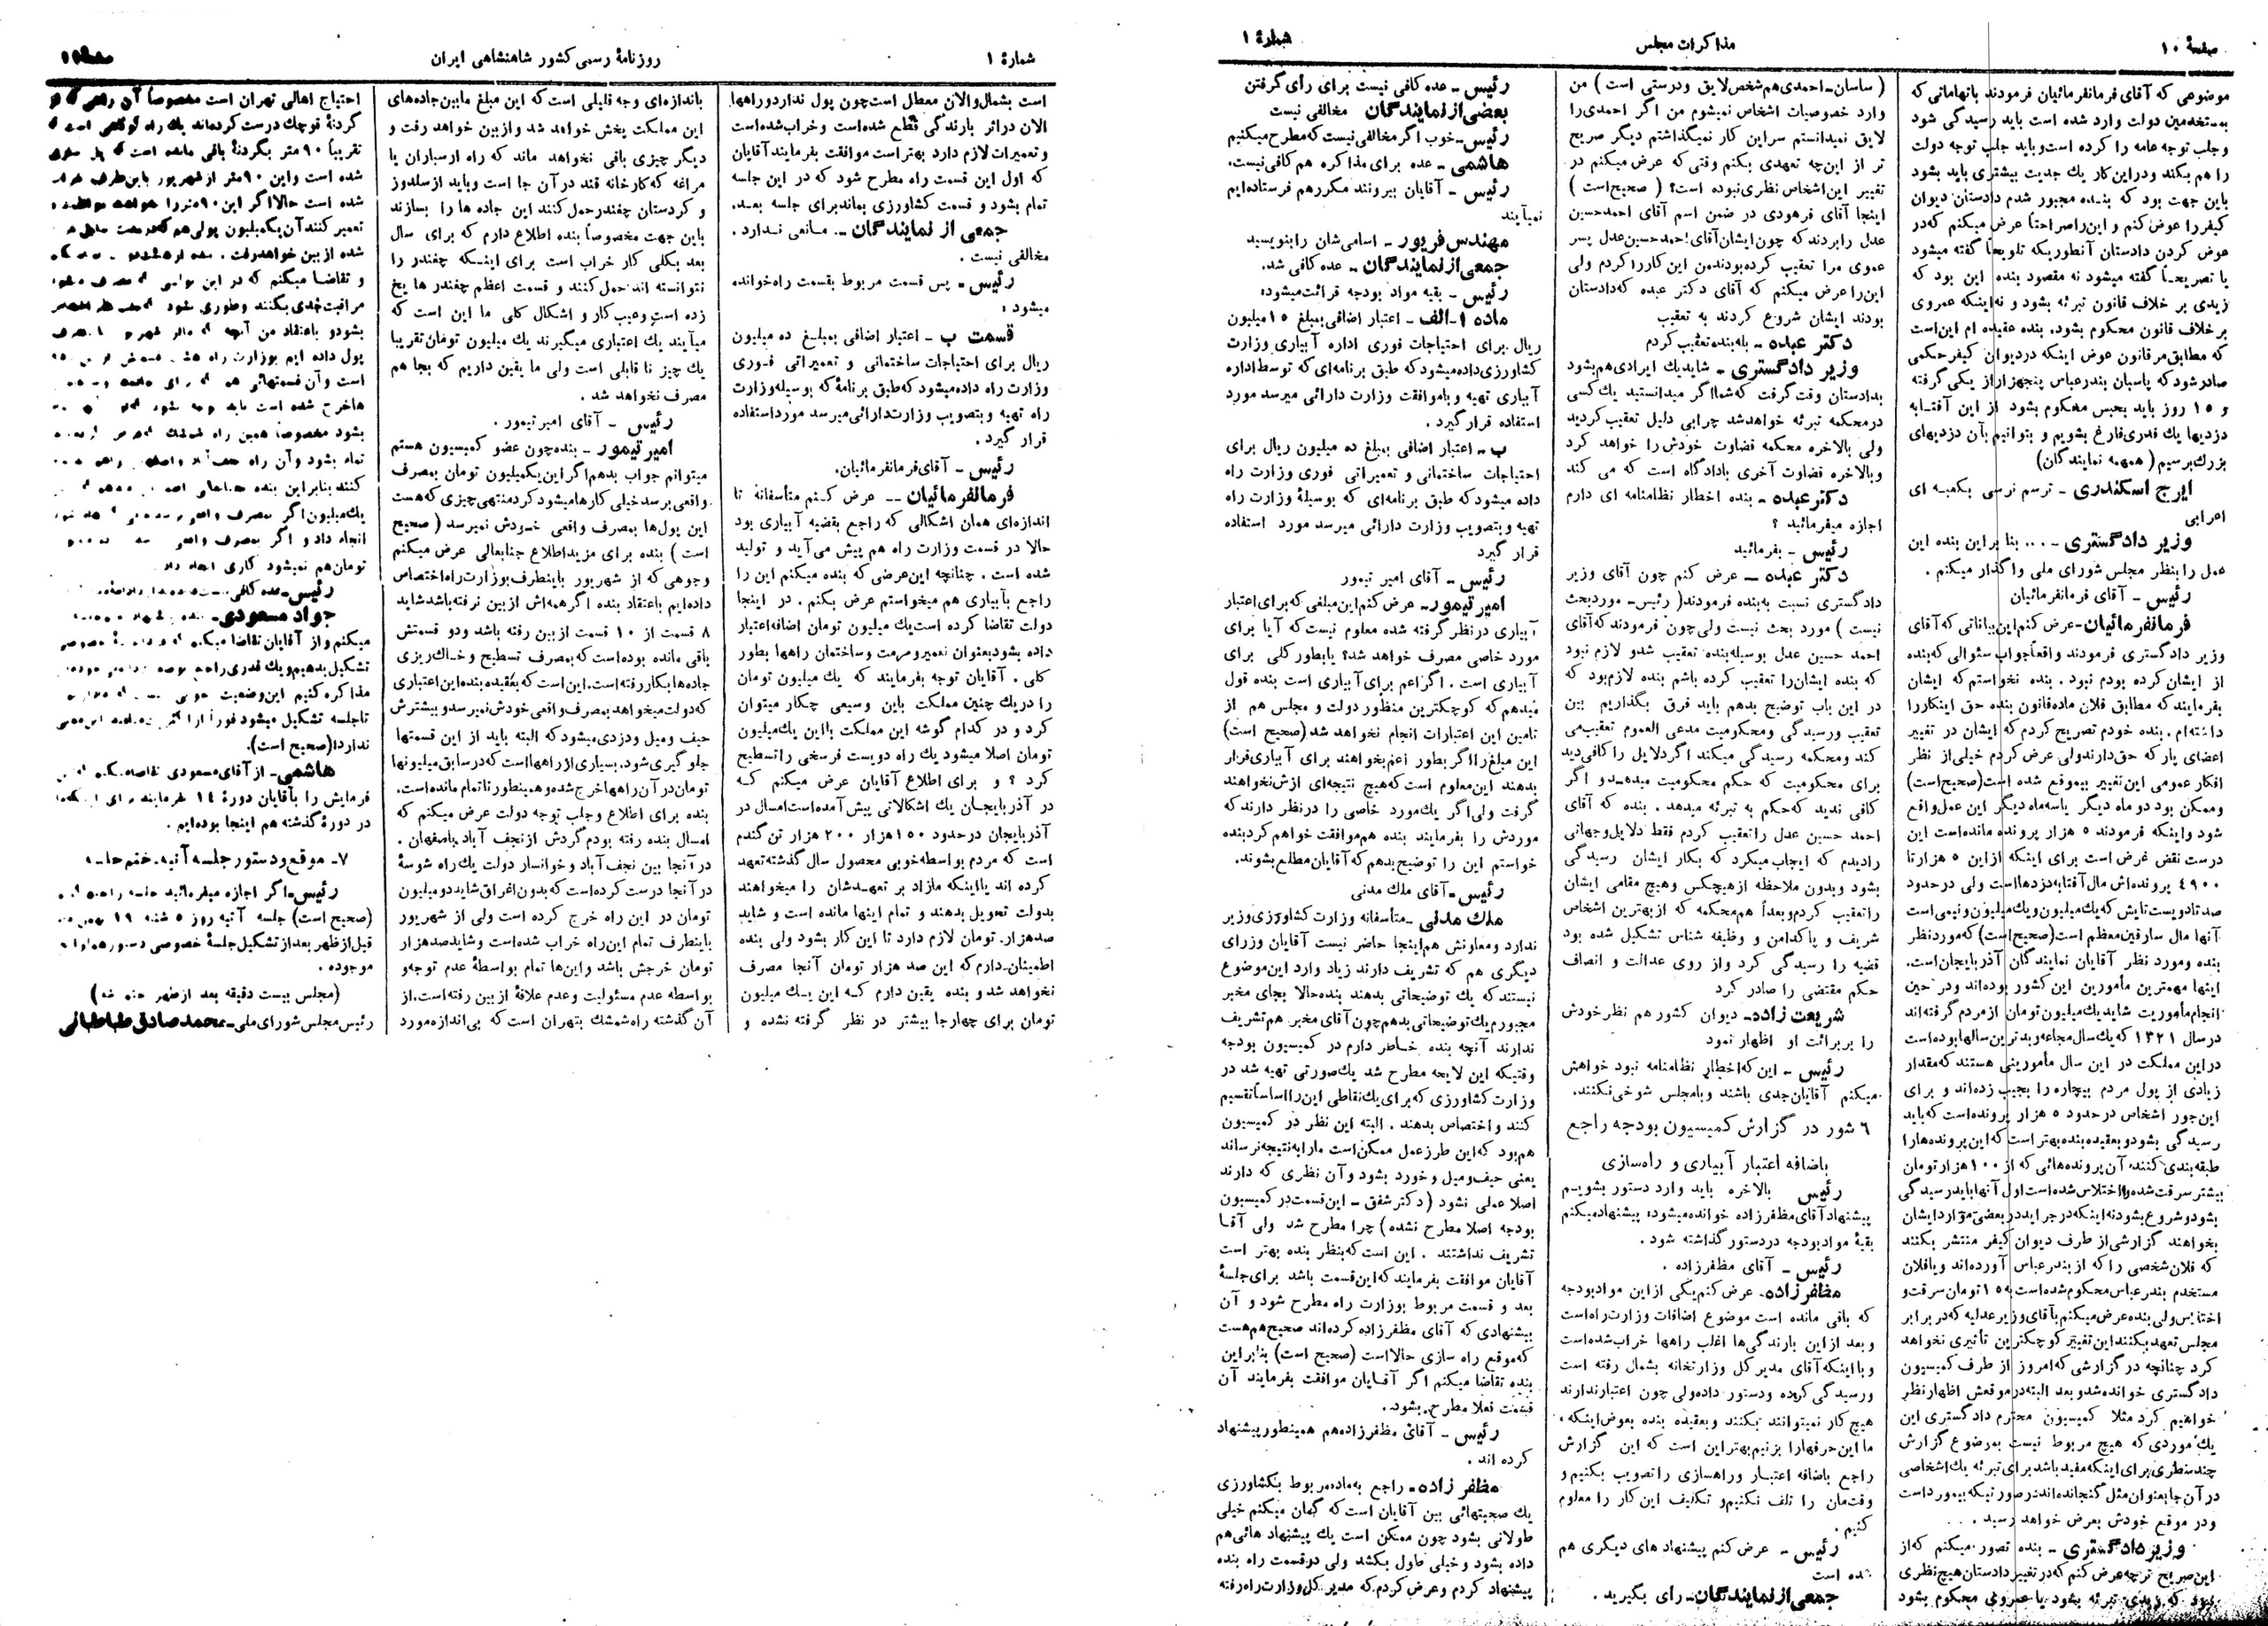 صفحهٔ ۱۰
مذاکرات مجلس
شمارهٔ ۱
موضوعی که آقای فرمانفرمائیان فرمودند باتهاماتی که
بمستخدمین دولت وارد شده است باید رسیدگی شود
و جلب توجه عامه را کرده است و باید جلب توجه دولت
را هم بکند و در این کار یك جدیت بیشتری باید بشود
باین جهت بود که بنده مجبور شدم دادستان دیوان
کیفر را عوض کنم و این را صراحتاً عرض میکنم که در
عوض کردن دادستان آنطوریکه تلویحاً گفته میشود
یا تصریحاً گفته میشود نه مقصود بنده این بود که
زیدی بر خلاف قانون تبرئه بشود و نه اینکه عمروی
بر خلاف قانون محکوم بشود. بنده عقیده ام این است
که مطابق مر قانون عوض اینکه در دیوان کیفر حکمی
صادر شود که پاسبان بندرعباس پنجهزار از یکی گرفته
و ۱۵ روز باید بحبس محکوم بشود از این آفتابه
دزدیها یك قدری فارغ بشویم و بتوانیم بآن دزدیهای
بزرگ برسیم (همهمه نمایندگان)
ایرج اسکندری - ترسم نرسی بکعبه ای
اعرابی
وزیر دادگستری - .... بنا بر این بنده این
عمل را بنظر مجلس شورای ملی واگذار میکنم .
رئیس - آقای فرمانفرمائیان
فرمانفرمائیان - عرض کنم این بیاناتی که آقای
وزیر دادگستری فرمودند واقعاً جواب سئوالی که بنده
از ایشان کرده بودم نبود. بنده نخواستم که ایشان
بفرمایند که مطابق فلان ماده قانون بنده حق اینکار را
داشته‌ام. بنده خودم تصریح کردم که ایشان در تغییر
اعضای پارکه حق دارند ولی عرض کردم خیلی از نظر
افکار عمومی این تغییر بیموقع شده است (صحیح است)
و ممکن بود دو ماه دیگر یا سه ماه دیگر این عمل واقع
شود و اینکه فرمودند ۵ هزار پرونده مانده است این
درست نقض غرض است برای اینکه از این ۵ هزار تا
۴۹۰۰ پرونده‌اش مال آفتابه دزدها است ولی در حدود
صد تا دویست تایش که یك میلیون و یك میلیون و نیمی است
آنها مال سارقین معظم است (صحیح است) که مورد نظر
بنده و مورد نظر آقایان نمایندگان آذربایجان است.
اینها مهمترین مأمورین این کشور بوده‌اند و در حین
انجام مأموریت شاید یك میلیون تومان از مردم گرفته‌اند
در سال ۱۳۲۱ که یك سال مجاعه و بدترین سالها بوده است
در این مملکت در این سال مأمورینی هستند که مقدار
زیادی از پول مردم بیچاره را بجیب زده‌اند و برای
این جور اشخاص در حدود ۵ هزار پرونده است که باید
رسیدگی بشود و بعقیده بنده بهتر است که این پرونده‌ها را
طبقه بندی کنند، آن پرونده‌هائی که از ۱۰۰ هزار تومان
بیشتر سرقت شده و یا اختلاس شده است اول آنها باید رسیدگی
بشود و شروع بشود نه اینکه در جراید در بعضی موارد ایشان
بخواهند گزارشی از طرف دیوان کیفر منتشر بکنند
که فلان شخصی را که از بندرعباس آورده‌اند و یا فلان
مستخدم بندرعباس محکوم شده است به ۱۵ تومان سرقت و
اختلاس ولی بنده عرض میکنم بآقای وزیر عدلیه که در برابر
مجلس تعهد بکنند این تغییر کوچکترین تأثیری نخواهد
کرد چنانچه در گزارشی که امروز از طرف کمیسیون
دادگستری خوانده شد و بعد البته در موقعش اظهار نظر
خواهیم کرد مثلا کمیسیون محترم دادگستری این
یك موردی که هیچ مربوط نیست بموضوع گزارش
چند سطری برای اینکه مفید باشد برای تبرئه یك اشخاصی
در آن جا بعنوان مثل گنجانده‌اند در صورتیکه بیمورد است
و در موقع خودش بعرض خواهد رسید . . .
وزیر دادگستری - بنده تصور میکنم که از
این صریح تر چه عرض کنم که در تغییر دادستان هیچ نظری
نبود که زیدی تبرئه بشود یا عمروی محکوم بشود
(ساسان - احمدی هم شخص لایق و درستی است) من
وارد خصوصیات اشخاص نمیشوم من اگر احمدی را
لایق نمیدانستم سر این کار نمیگذاشتم دیگر صریح
تر از این چه تعهدی بکنم وقتی که عرض میکنم در
تغییر این اشخاص نظری نبوده است؟ (صحیح است)
اینجا آقای فرهودی در ضمن اسم آقای احمد حسین
عدل را بردند که چون ایشان آقای احمد حسین عدل پسر
عموی مرا تعقیب کرده بودند من این کار را کردم ولی
این را عرض میکنم که آقای دکتر عبده که دادستان
بودند ایشان شروع کردند به تعقیب
دکتر عبده - بله بنده تعقیب کردم
وزیر دادگستری - شاید یك ایرادی هم بشود
بدادستان وقت گرفت که شما اگر میدانستید یك کسی
در محکمه تبرئه خواهد شد چرا بی دلیل تعقیب کردید
ولی بالاخره محکمه قضاوت خودش را خواهد کرد
و بالاخره قضاوت آخری با دادگاه است که می کند
دکتر عبده - بنده اخطار نظامنامه ای دارم
اجازه میفرمائید ؟
رئیس - بفرمائید
دکتر عبده - عرض کنم چون آقای وزیر
دادگستری نسبت به بنده فرمودند (رئیس - مورد بحث
نیست) مورد بحث نیست ولی چون فرمودند که آقای
احمد حسین عدل بوسیله بنده تعقیب شد و لازم نبود
که بنده ایشان را تعقیب کرده باشم بنده لازم بود که
در این باب توضیح بدهم باید فرق بگذاریم بین
تعقیب و رسیدگی و محکومیت مدعی العموم تعقیب می
کند و محکمه رسیدگی میکند اگر دلایل را کافی دید
برای محکومیت که حکم محکومیت میدهد و اگر
کافی ندید که حکم به تبرئه میدهد . بنده که آقای
احمد حسین عدل را تعقیب کردم فقط دلایل و جهاتی
را دیدم که ایجاب میکرد که بکار ایشان رسیدگی
بشود و بدون ملاحظه از هیچکس و هیچ مقامی ایشان
را تعقیب کردم و بعداً هم محکمه که از بهترین اشخاص
شریف و پاکدامن و وظیفه شناس تشکیل شده بود
قضیه را رسیدگی کرد و از روی عدالت و انصاف
حکم مقتضی را صادر کرد
شریعت زاده - دیوان کشور هم نظر خودش
را بر برائت او اظهار نمود
رئیس - این که اخطار نظامنامه نبود خواهش
میکنم آقایان جدی باشند و با مجلس شوخی نکنند.
۶ شور در گزارش کمیسیون بودجه راجع
باضافه اعتبار آبیاری و راه‌سازی
رئیس بالاخره باید وارد دستور بشویم
پیشنهاد آقای مظفرزاده خوانده میشود، پیشنهاد میکنم
بقیهٔ مواد بودجه در دستور گذاشته شود .
رئیس - آقای مظفرزاده .
مظفرزاده - عرض کنم یکی از این مواد بودجه
که باقی مانده است موضوع اضافات وزارت راه است
و بعد از این بارندگی‌ها اغلب راهها خراب شده است
و با اینکه آقای مدیر کل وزارتخانه بشمال رفته است
و رسیدگی کرده و دستور داده ولی چون اعتبار ندارند
هیچ کار نمیتوانند بکنند و بعقیده بنده بعوض اینکه
ما این حرفها را بزنیم بهتر این است که این گزارش
راجع باضافه اعتبار و راهسازی را تصویب بکنیم و
وقتمان را تلف نکنیم و تکلیف این کار را معلوم
کنیم .
رئیس - عرض کنم پیشنهاد های دیگری هم
شده است
جمعی از نمایندگان - رای بگیرید .
رئیس - عده کافی نیست برای رأی گرفتن
بعضی از نمایندگان مخالفی نیست
رئیس - خوب اگر مخالفی نیست که مطرح میکنیم
هاشمی - عده برای مذاکره هم کافی نیست.
رئیس - آقایان بیرونند مکرر هم فرستاده‌ایم
نمیآیند
مهندس فریور - اسامی‌شان را بنویسید
جمعی از نمایندگان - عده کافی شد.
رئیس - بقیه مواد بودجه قرائت میشود:
ماده ۱ - الف - اعتبار اضافی بمبلغ ۱۵ میلیون
ریال برای احتیاجات فوری اداره آبیاری وزارت
کشاورزی داده میشود که طبق برنامه‌ای که توسط اداره
آبیاری تهیه و با موافقت وزارت دارائی میرسد مورد
استفاده قرار گیرد .
ب - اعتبار اضافی بمبلغ ده میلیون ریال برای
احتیاجات ساختمانی و تعمیراتی فوری وزارت راه
داده میشود که طبق برنامه‌ای که بوسیلهٔ وزارت راه
تهیه و بتصویب وزارت دارائی میرسد مورد استفاده
قرار گیرد
رئیس - آقای امیر تیمور
امیر تیمور - عرض کنم این مبلغی که برای اعتبار
آبیاری در نظر گرفته شده معلوم نیست که آیا برای
مورد خاصی مصرف خواهد شد؟ یا بطور کلی برای
آبیاری است . اگر اعم برای آبیاری است بنده قول
میدهم که کوچکترین منظور دولت و مجلس هم از
تامین این اعتبارات انجام نخواهد شد (صحیح است)
این مبلغ را اگر بطور اعم بخواهند برای آبیاری قرار
بدهند این معلوم است که هیچ نتیجه‌ای ازش نخواهند
گرفت ولی اگر یك مورد خاصی را در نظر دارند که
موردش را بفرمایند بنده هم موافقت خواهم کرد بنده
خواستم این را توضیح بدهم که آقایان مطلع بشوند.
رئیس - آقای ملك مدنی
ملك مدنی - متأسفانه وزارت کشاورزی وزیر
ندارد و معاونش هم اینجا حاضر نیست آقایان وزرای
دیگری هم که تشریف دارند زیاد وارد این موضوع
نیستند که یك توضیحاتی بدهند بنده حالا بجای مخبر
مجبورم یك توضیحاتی بدهم چون آقای مخبر هم تشریف
ندارند آنچه بنده خاطر دارم در کمیسیون بودجه
وقتیکه این لایحه مطرح شد یك صورتی تهیه شد در
وزارت کشاورزی که برای یك نقاطی این را اساساً تقسیم
کنند و اختصاص بدهند . البته این نظر در کمیسیون
هم بود که این طرز عمل ممکن است ما را به نتیجه نرساند
یعنی حیف و میل و خورد بشود و آن نظری که دارند
اصلا عملی نشود (دکتر شفق - این قسمت در کمیسیون
بودجه اصلا مطرح نشده) چرا مطرح شد ولی آقا
تشریف نداشتند . این است که بنظر بنده بهتر است
آقایان موافقت بفرمایند که این قسمت باشد برای جلسهٔ
بعد و قسمت مربوط بوزارت راه مطرح شود و آن
پیشنهادی که آقای مظفرزاده کرده‌اند صحیح هم هست
که موقع راه سازی حالا است (صحیح است) بنابراین
بنده تقاضا میکنم اگر آقایان موافقت بفرمایند آن
قسمت فعلا مطرح بشود.
رئیس - آقای مظفرزاده هم همینطور پیشنهاد
کرده اند .
مظفر زاده - راجع بماده مربوط بکشاورزی
یك صحبتهائی بین آقایان است که گمان میکنم خیلی
طولانی بشود چون ممکن است یك پیشنهاد هائی هم
داده بشود و خیلی طول بکشد ولی در قسمت راه بنده
پیشنهاد کردم و عرض کردم که مدیر کل وزارت راه رفته
شمارهٔ ۱
روزنامهٔ رسمی کشور شاهنشاهی ایران
است بشمال و الان معطل است چون پول ندارد و راهها
الان در اثر بارندگی قطع شده است و خراب شده است
و تعمیرات لازم دارد بهتر است موافقت بفرمایند آقایان
که اول این قسمت راه مطرح شود که در این جلسه
تمام بشود و قسمت کشاورزی بماند برای جلسه بعد.
جمعی از نمایندگان - مانعی ندارد .
مخالفی نیست .
رئیس - پس قسمت مربوط بقسمت راه خوانده
میشود :
قسمت ب - اعتبار اضافی بمبلغ ده میلیون
ریال برای احتیاجات ساختمانی و تعمیراتی فوری
وزارت راه داده میشود که طبق برنامهٔ که بوسیله وزارت
راه تهیه و بتصویب وزارت دارائی میرسد مورد استفاده
قرار گیرد .
رئیس - آقای فرمانفرمائیان.
فرمانفرمائیان - عرض کنم متأسفانه تا
اندازه‌ای همان اشکالی که راجع بقضیه آبیاری بود
حالا در قسمت وزارت راه هم پیش می‌آید و تولید
شده است . چنانچه این عرضی که بنده میکنم این را
راجع بآبیاری هم میخواستم عرض بکنم . در اینجا
دولت تقاضا کرده است یك میلیون تومان اضافه اعتبار
داده بشود بعنوان تعمیر و مرمت و ساختمان راهها بطور
کلی . آقایان توجه بفرمایند که یك میلیون تومان
را در یك چنین مملکت باین وسیعی چکار میتوان
کرد و در کدام گوشه این مملکت با این یك میلیون
تومان اصلا میشود یك راه دویست فرسخی را تسطیح
کرد ؟ و برای اطلاع آقایان عرض میکنم که
در آذربایجان یك اشکالاتی پیش آمده است امسال در
آذربایجان در حدود ۱۵۰ هزار ۲۰۰ هزار تن گندم
است که مردم بواسطه خوبی محصول سال گذشته تعهد
کرده اند یا اینکه مازاد بر تعهدشان را میخواهند
بدولت تحویل بدهند و تمام اینها مانده است و شاید
صد هزار تومان لازم دارد تا این کار بشود ولی بنده
اطمینان دارم که این صد هزار تومان آنجا مصرف
نخواهد شد و بنده یقین دارم که این یك میلیون
تومان برای چهار جا بیشتر در نظر گرفته نشده و
باندازه‌ای وجه قلیلی است که این مبلغ مابین جاده‌های
این مملکت پخش خواهد شد و از بین خواهد رفت و
دیگر چیزی باقی نخواهد ماند که راه ارسباران یا
مراغه که کارخانه قند در آن جا است و باید از سلدوز
و کردستان چغندر حمل کنند این جاده ها را بسازند
باین جهت مخصوصاً بنده اطلاع دارم که برای سال
بعد بکلی کار خراب است برای اینکه چغندر را
نتوانسته اند حمل کنند و قسمت اعظم چغندر ها یخ
زده است و عیب کار و اشکال کلی ما این است که
میآیند یك اعتباری میگیرند یك میلیون تومان تقریبا
یك چیز نا قابلی است ولی ما یقین داریم که بجا هم
مصرف نخواهد شد .
رئیس - آقای امیر تیمور .
امیر تیمور - بنده چون عضو کمیسیون هستم
میتوانم جواب بدهم اگر این یکمیلیون تومان بمصرف
واقعی برسد خیلی کارها میشود کرد منتهی چیزی که هست
این پول‌ها بمصرف واقعی خودش نمیرسد (صحیح
است) بنده برای مزید اطلاع جنابعالی عرض میکنم
وجوهی که از شهریور باینطرف بوزارت راه اختصاص
داده‌ایم باعتقاد بنده اگر همه‌اش از بین نرفته باشد شاید
۸ قسمت از ۱۰ قسمت از بین رفته باشد و دو قسمتش
باقی مانده بوده است که بمصرف تسطیح و خاك ریزی
جاده‌ها بکار رفته است. این است که بعقیده بنده این اعتباری
که دولت میخواهد بمصرف واقعی خودش نمیرسد و بیشترش
حیف و میل و دزدی میشود که البته باید از این قسمتها
جلوگیری شود. بسیاری از راهها است که در سابق میلیونها
تومان در آن راهها خرج شده و همینطور ناتمام مانده است.
بنده برای اطلاع و جلب توجه دولت عرض میکنم که
امسال بنده رفته بودم گردش از نجف آباد باصفهان .
در آنجا بین نجف آباد و خوانسار دولت یك راه شوسهٔ
در آنجا درست کرده است که بدون اغراق شاید دو میلیون
تومان در این راه خرج کرده است ولی از شهریور
باینطرف تمام این راه خراب شده است و شاید صد هزار
تومان خرجش باشد و این‌ها تمام بواسطهٔ عدم توجه و
بواسطه عدم مسئولیت و عدم علاقهٔ از بین رفته است. از
آن گذشته راه شمشك بتهران است که بی اندازه مورد
احتیاج اهالی تهران است مخصوصاً آن راهی که از
گردنهٔ قوچك درست کرده‌اند یك راه کوتاهی است که
تقریباً ۹۰ متر بگردنهٔ باقی مانده است که
شده است و این ۹۰ متر از شهریور باین طرف
شده است حالا اگر این ۹۰ متر را نخواهند
تعمیر کنند آن یکمیلیون پولی هم که
شده از بین خواهد رفت .
و تقاضا میکنم که در این
مراقبت جدی بکنند و طوری شود که
بشود و باعتقاد من آنچه که
پول داده ایم بوزارت راه
است و آن قسمتهائی هم که برای
خارج شده است باید توجه شود
بشود مخصوصاً همین راه شمشك
تمام بشود و آن راه
کنند بنابراین بنده
یك میلیون اگر بمصرف واقعی برسد
انجام داد و اگر بمصرف واقعی
تومان هم نمیشود کاری انجام داد.
رئیس - عده کافی
جواد مسعودی - بنده پیشنهاد
میکنم و از آقایان تقاضا میکنم که
تشکیل بدهیم و یك قدری راجع بوضع
مذاکره کنیم این وضعیت خوبی نیست که
تا جلسه تشکیل میشود فوراً از اکثریت
ندارد! (صحیح است).
هاشمی - از آقای مسعودی تقاضا میکنم که این
فرمایش را بآقایان دورهٔ ۱۴ بفرمایند برای اینکه ما
در دورهٔ گذشته هم اینجا بوده‌ایم .
۷ - موقع و دستور جلسه آتیه - ختم جلسه
رئیس - اگر اجازه میفرمائید جلسه را ختم کنیم
(صحیح است) جلسه آتیه روز ۵ شنبه ۱۹ بهمن
قبل از ظهر بعد از تشکیل جلسهٔ خصوصی دستور هم لوایح
موجوده .
(مجلس بیست دقیقه بعد از ظهر ختم شد)
رئیس مجلس شورای ملی - محمد صادق طباطبائی